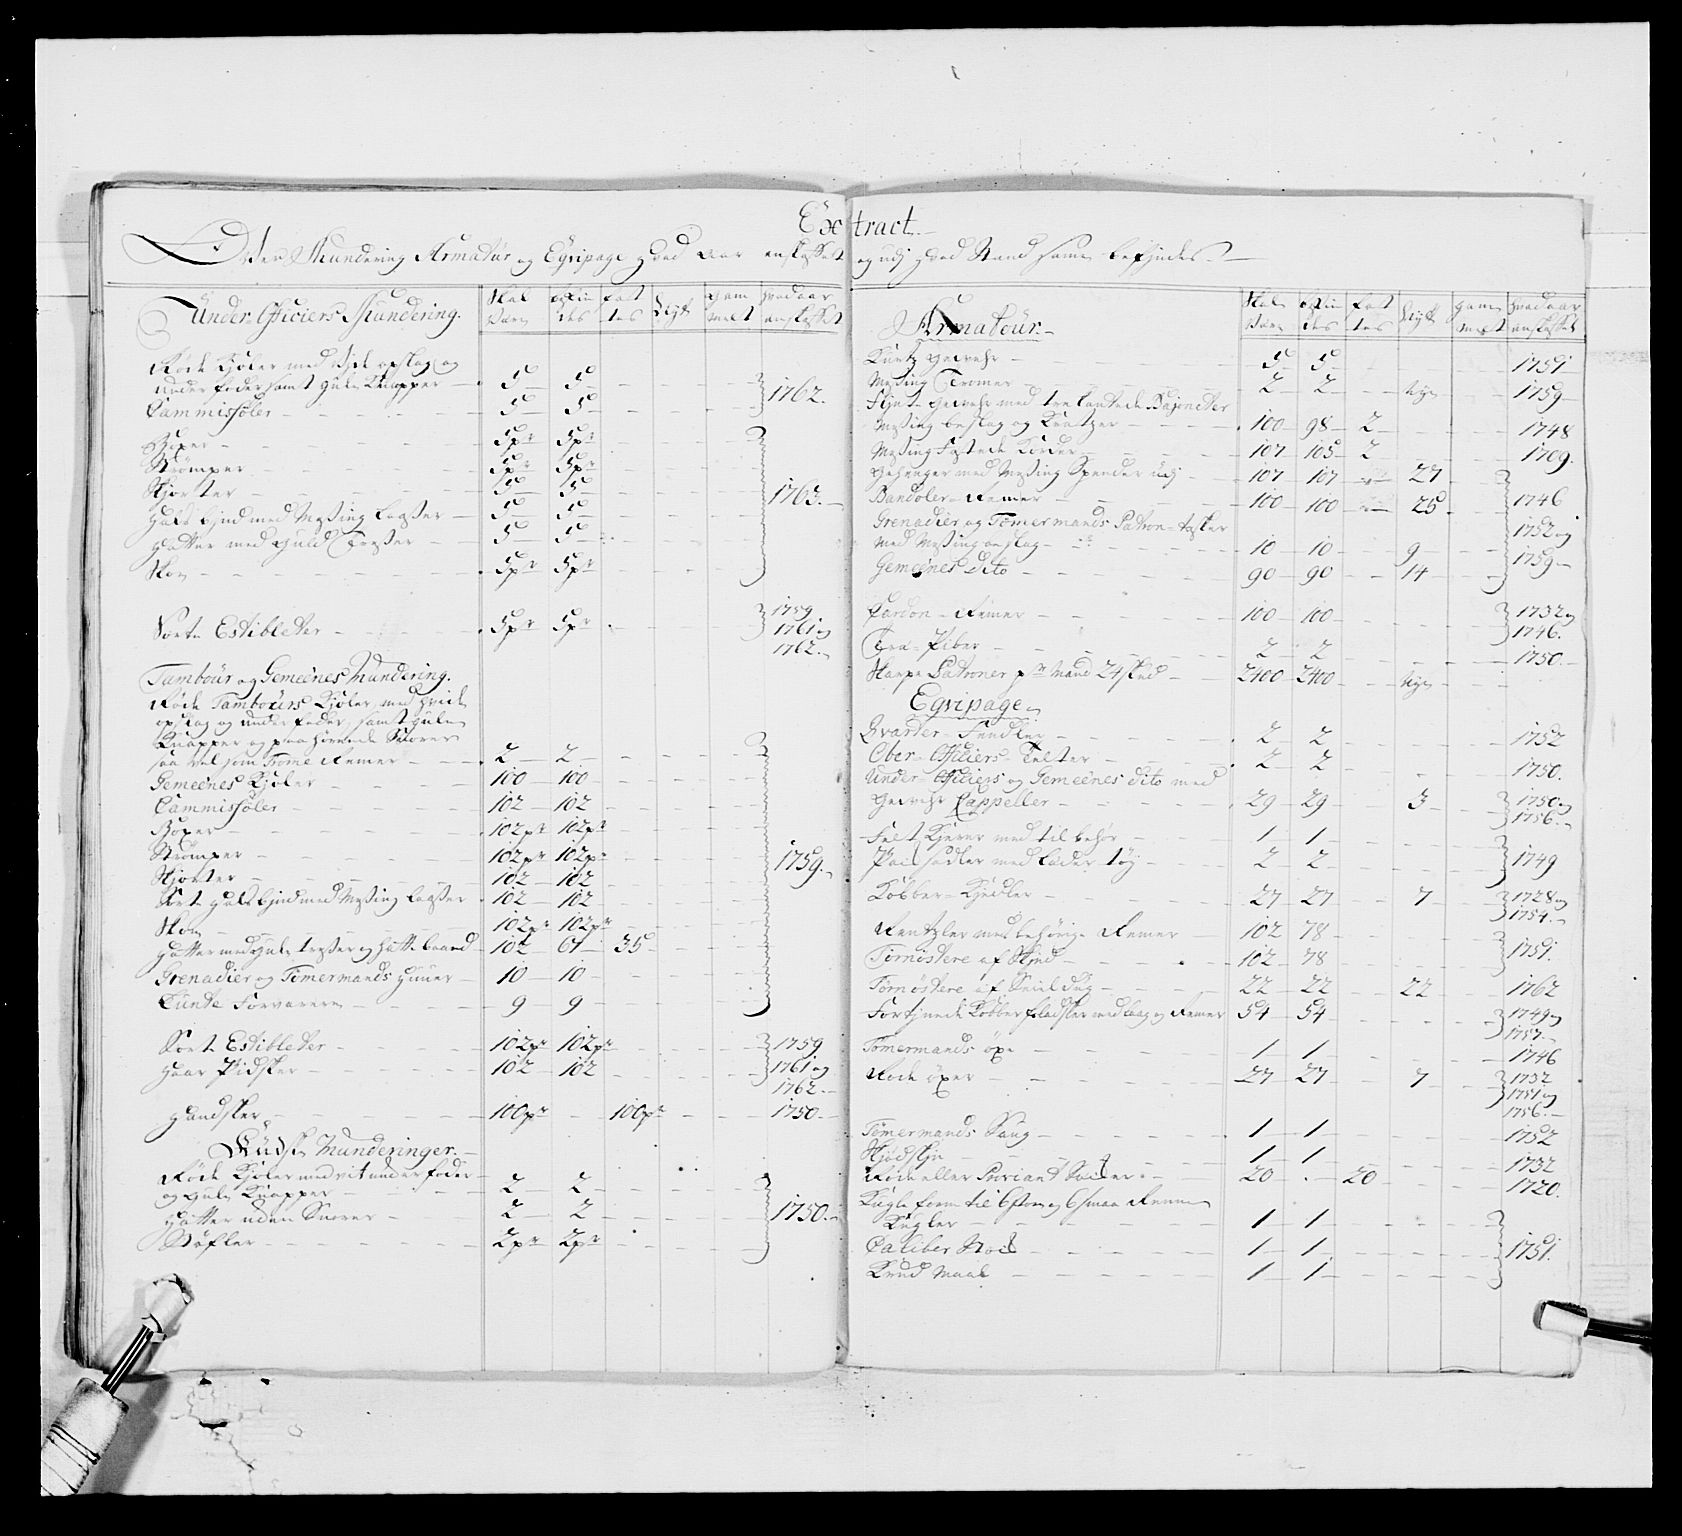 Extract
Over Mundering Armatur og Eqvipage hvad Aar anskaffet og udj hvad Stand samme befindes
Under-Officiers Mundering. Skal Være Befindes Fattes Slet Gammelt hvad aar anskaffet
Røde Kjoler med opslag og
under foder samt gule Knapper 5 5
Cammissoler 5 5 1762.
Buxer 5pr 5pr
Strømper 5pr 5pr
Skjorter 5 5
Hals bind med Messing laaser 5 5 1763.
Hatter med Guld Tresser 5 5
Skoe 5pr 5pr
Sorte Estibletter 5pr 5pr 1759 1761 og 1762.
Tambour og Gemeenes Mundering.
Røde Tambours Kjoler med hvide
opslag og under foder, samt gule
Knapper og paahørende Snorer
saa vel som Tromme Remer 2 2
Gemeenes Kjoler 100 100
Cammissoler 102 102
Buxer 102pr 102pr
Strømper 102pr 102pr
Skjorter 102 102 1759.
Sort Hals bind med Messing laaser 102 102
Skoe 102pr 102pr
Hatter med gule tresser og hatte baand 102 67 35
Grenadier og Tømermands Huuer 10 10
Lunte Forvarere 9 9
Sorte Estibletter 102pr 102pr 1759
Haar Pidsker 102 102 1761 og 1762.
Handsker 100pr 100pr 1750
Kudsk Munderinger.
Røde Kjoler med vit under foder
og gule Knapper 2 2
Hatter uden Snorer 2 2 1750.
Støfler 2pr 2pr
Armatour. Skal Være Befindes Fattes Slet Gammelt hvad aar anskaffet
Kurtz gevehr 5 5 1751
Messing Tromer 2 2 nye 1759
Flint gevehr med tre kantede Bajonetter
Messing beslag og Kratzer 100 98 2 1748
Messing Fæstede Korder 107 105 2 1709.
Gehenger med Messing Spender udj 107 107 27
Bandoler-Remer 100 100 25 1746
Grenadier og Tømermands Patron-tasker
med Messing beslag 10 10 9 1752 og
Gemeenes dito 90 90 14 1759
Cardon-Remer 100 100 1732 og 1746.
Træ-Piber 2 2 1750.
Skarpe Patroner pr Mand 24 stk 2400 2400 nye
Eqvipage
Qvarter-Fendler 2 2 1752
Ober-Officiers-Telter 2 2 1750.
Under-Officiers og Gemeenes dito med
Gevehr Cappeller 29 29 3 1750 og 1756.
Felt Kjerrer med tilbehør 1 1
Pak sadler med læder tøj 2 2 1749
Kobber-Kjedler 27 27 7 1728 og 1754.
Rentzler med behørige Remer 102 78
Tornøstere af Skind 102 78 1751.
Tornøstere af Seildug 22 22 22 1762
Fortinede Kobber fladsker med laag og Remer 54 54 1749 og 1757.
Tømermands øxe 1 1 1746
Røde øxer 27 27 7 1732 1751 og 1756.
Tømermands Saug 1 1 1752
Skjødskin 1 1 1732
Røde eller Proviant Sækker 20 . 20 1720.
Kugle form til 6 store og 6 smaa Renne
Kugler 1 1
Caliber Stok 1 1 1751.
Krud Maal 1 1